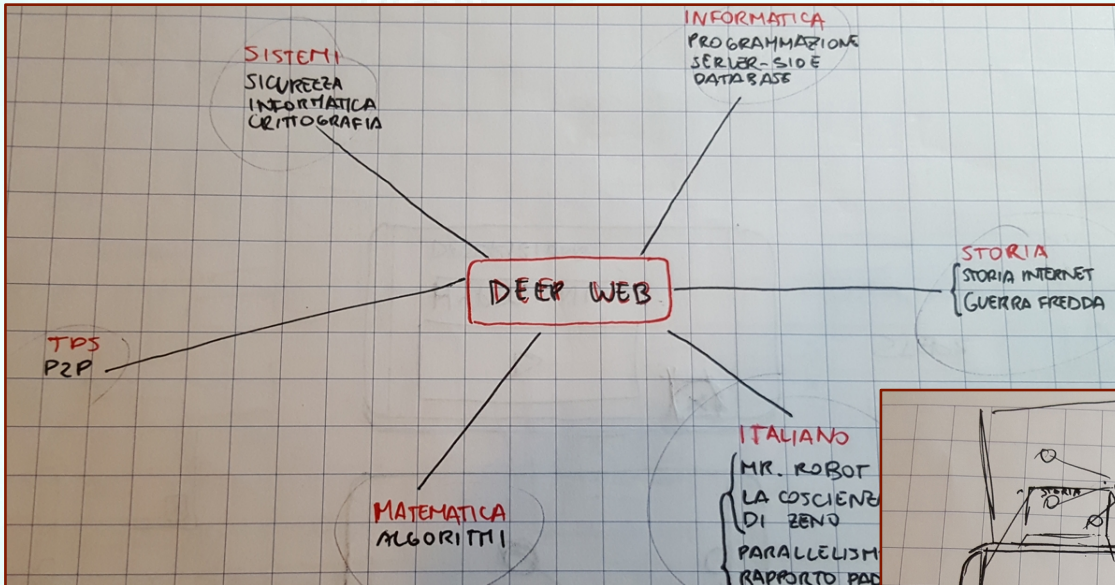 SISTEMI
SICUREZZA
INFORMATICA
CRITTOGRAFIA
INFORMATICA
PROGRAMMAZIONE
SERVER-SIDE
DATABASE
DEEP WEB
STORIA
STORIA INTERNET
GUERRA FREDDA
TPS
P2P
MATEMATICA
ALGORITMI
ITALIANO
MR. ROBOT
LA COSCIENZ
DI ZENO
PARALLELISM
RAPPORTO PAD
STORIA